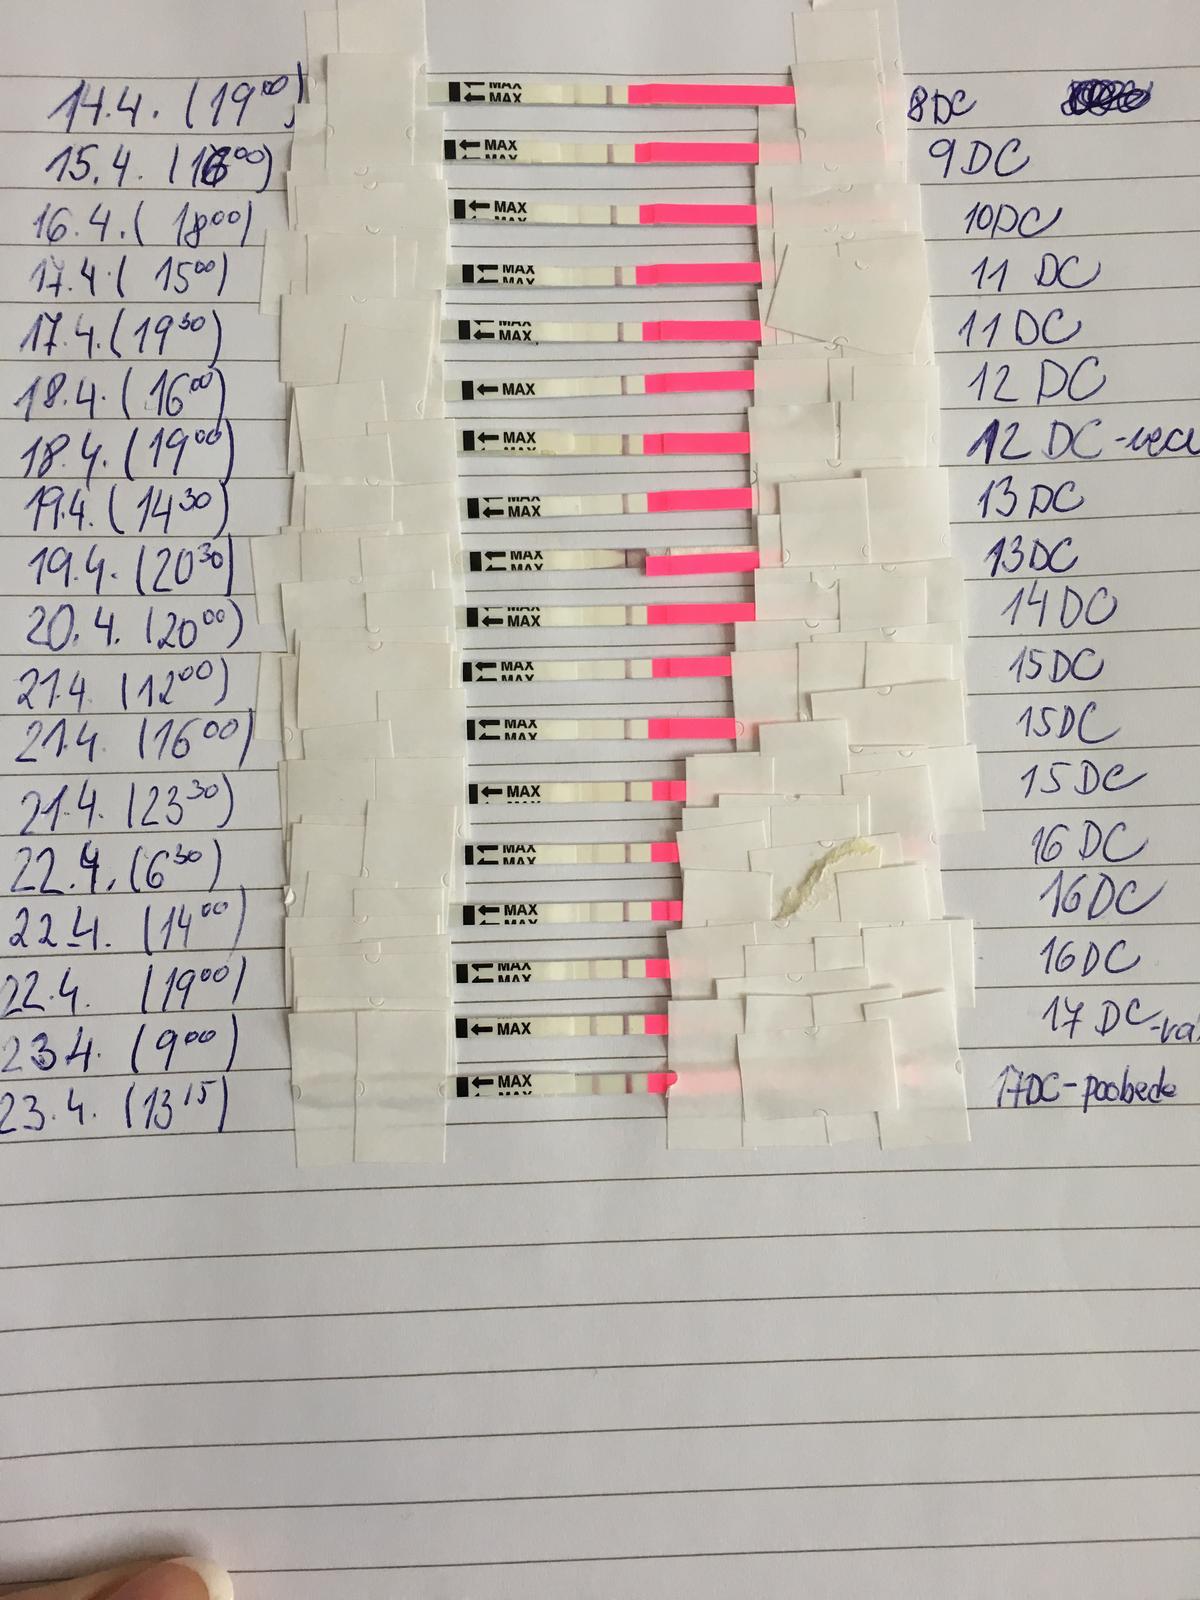 14.4. (19⁰⁰) MAX MAX 8DC
15.4. (16⁰⁰) MAX MAX 9DC
16.4. (18⁰⁰) MAX MAX 10DC
17.4. (15⁰⁰) MAX MAX 11 DC
17.4. (19³⁰) MAX MAX 11 DC
18.4. (16⁰⁰) MAX 12 DC
18.4. (19⁰⁰) MAX 12 DC
19.4. (14³⁰) MAX MAX 13 DC
19.4. (20³⁰) MAX MAX 13DC
20.4. (20⁰⁰) MAX MAX 14DC
21.4. (12⁰⁰) MAX MAX 15DC
21.4. (16⁰⁰) MAX MAX 15DC
21.4. (23³⁰) MAX MAX 15 DC
22.4. (6³⁰) MAX MAX 16 DC
22.4. (14⁰⁰) MAX MAX 16DC
22.4. (19⁰⁰) MAX MAX 16DC
23.4. (9⁰⁰) MAX 17 DC
23.4. (13¹⁵) MAX MAX 17DC-poobede